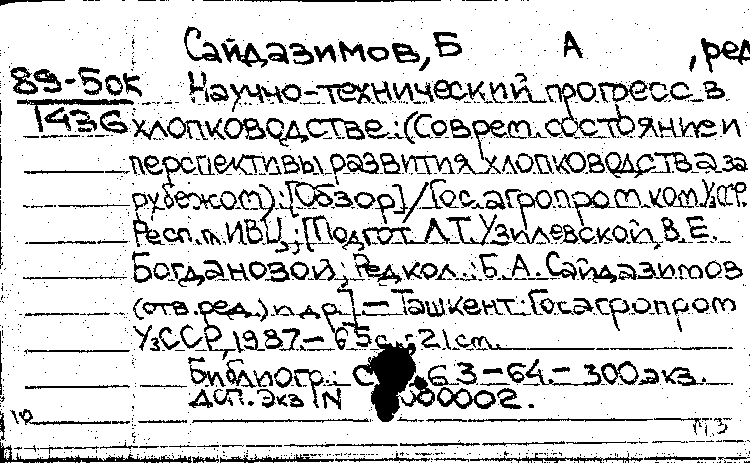 Сайдазимов, Б А , ред
89-5ок
1436
Научно-технический прогресс в
хлопководстве: (Соврем. состояние и
перспективы развития хлопководства за
рубежом): [Обзор] / Госагропром. ком. УзССР.
Респ. п. ИВЦ; [Подгот. Л.Т. Узилевской, В.Е.
Богдановой; Редкол.: Б.А. Сайдазимов
(отв. ред.) и др.]. — Ташкент: Госагропром
УзССР, 1987. — 65 с.; 21 cm.
Библиогр.: с. 63-64. — 300 экз.
Деп. экз N 000002.
10
м,3